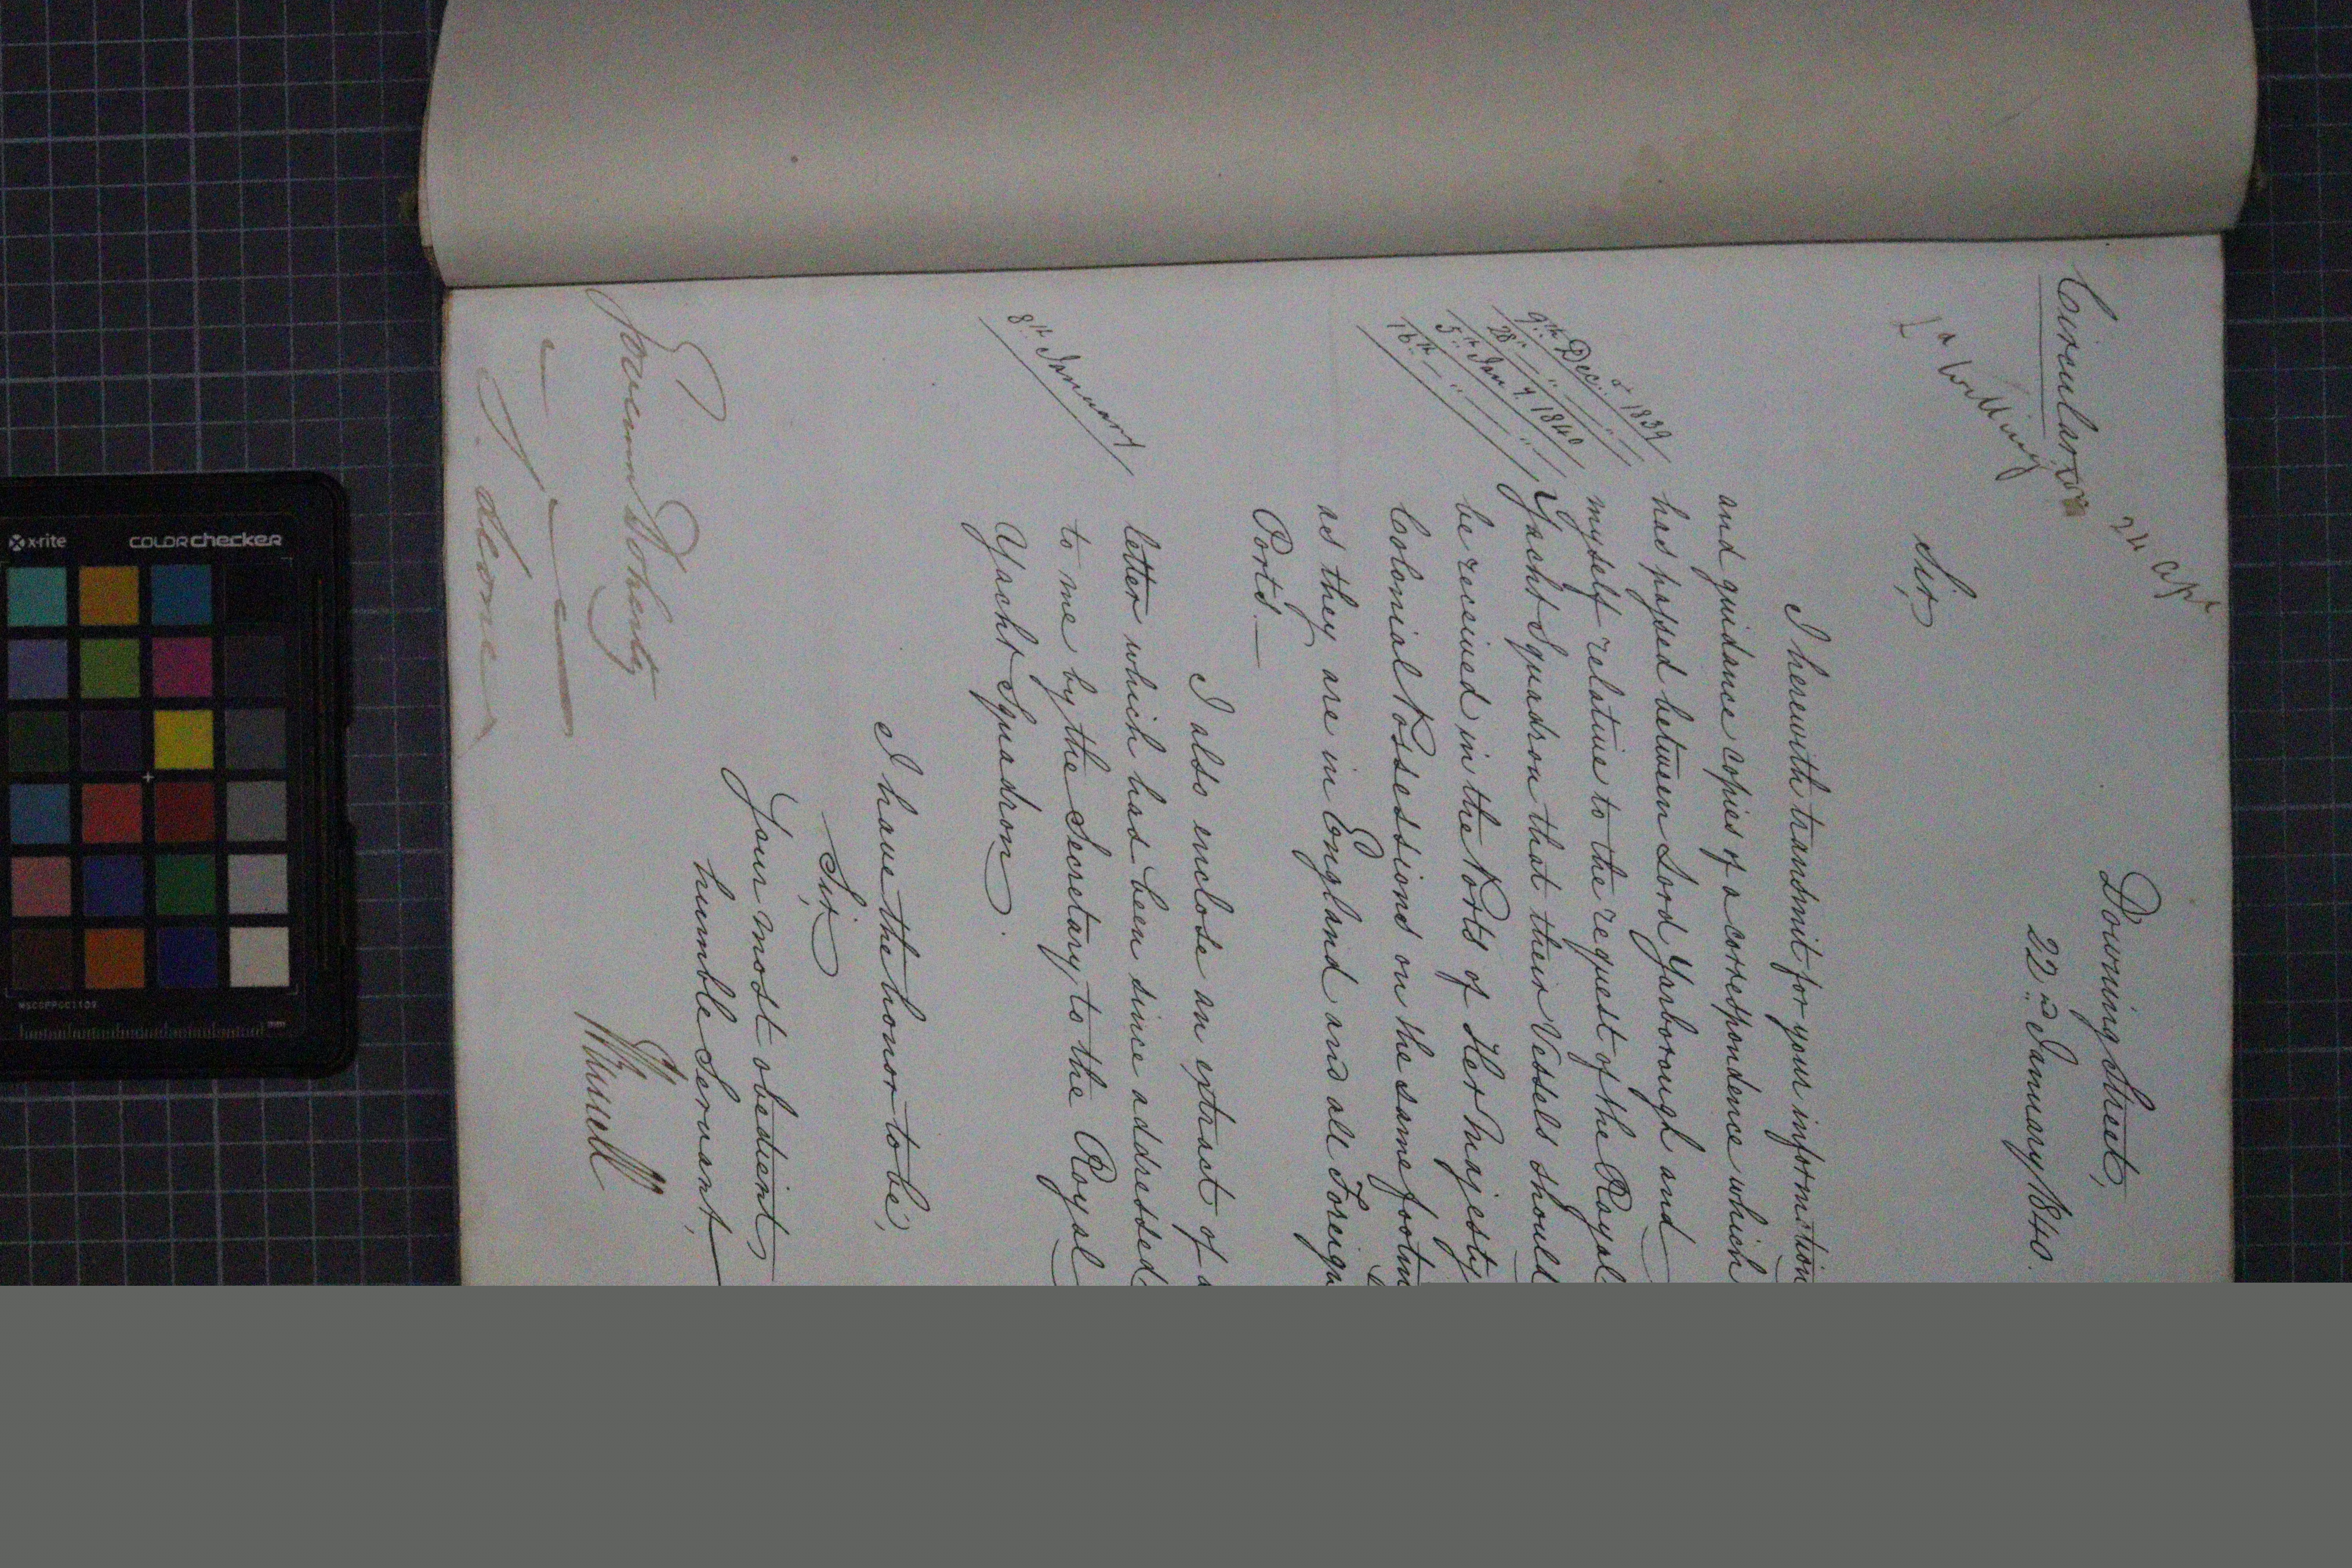 24 Apl
Circular
Downing Street,
22nd January 1840.
Sir,
I herewith transmit for your information
and guidance copies of a correspondence which
9th Decr 1839
has passed between Lord Yarborough and
28 " "
myself relative to the request of the Royal
5th Jany 1840
Yacht Squadron that their Vessels should
16th " "
be received in the Ports of Her Majesty
Colonial Possessions on the same footin
as they are in England and all Foreign
Ports.—
I also enclose an extract of a
8th January
letter which has been since addressed
to me by the Secretary to the Royal
Yacht Squadron.
I have the honor to be,
Sir,
Your most obedient
humble Servant,
JRussell
Governor Doherty
&c &c &c
S. Leone
x-rite
colorchecker
MSCCPPCC1109
mm